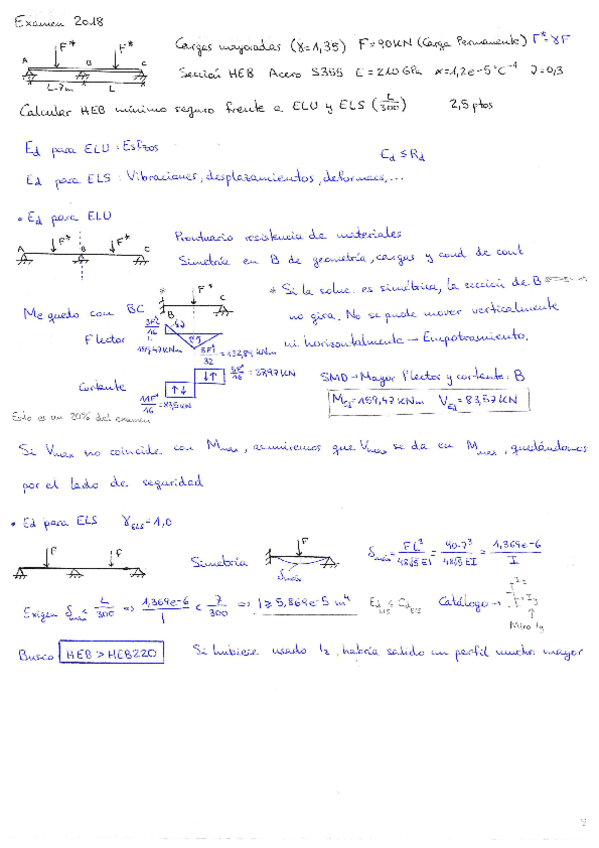 Examen 2018
F* F* Cargas mayoradas (γ=1,35) F=90KN (Carga Permanente) F*=γF
A B C Sección HEB Acero S355 E=210GPa α=1,2e-5°C⁻¹ ν=0,3
L=7m L
Calcular HEB mínimo seguro frente a ELU y ELS (L/300) 2,5 ptos
Ed para ELU: Esfzos Ed ≤ Rd
Ed para ELS: Vibraciones, desplazamientos, deformacs,...
• Ed para ELU
F* F* Prontuario resistencia de materiales
A B C Simetría en B de geometría, cargas y cond de cont
Me quedo con BC F* B C * Si la soluc. es simétrica, la sección de B
no gira. No se puede mover verticalmente
Flector 159,47KNm 5F*L/32 =132,89KNm ni horizontalmente → Empotramiento.
Cortante 11F*/16 =83,5KN 5F*/16 =37,97KN SMD→Mayor flector y cortante: B
M_Ed=159,47KNm V_Ed=83,57KN
Esto es un 20% del examen
Si Vmax no coincide con Mmax, asumiremos que Vmax se da en Mmax, quedándonos
por el lado de seguridad
• Ed para ELS γ_ELS=1,0
F F Simetría F δmáx δmáx = FL³/48√5EI = 90·7³/48√5EI = 1,369e-6/I
Exigen δmax ≤ L/300 ⇒ 1,369e-6/I < 7/300 ⇒ I ≥ 5,869e-5 m⁴ Ed_ELS ≤ Cd_ELS Catálogo →
Miro Iy
Busco HEB > HEB220 Si hubiese usado Iz, habría salido un perfil mucho mayor